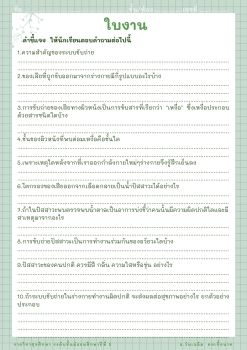 ใบงาน
คำชี้แจง ให้นักเรียนตอบคำถามต่อไปนี้
1.ความสำคัญของระบบขับถ่าย
2.ของเสียที่ถูกขับออกมาจากร่างกายมีกี่รูปแบบอะไรบ้าง
3.การขับถ่ายของเสียทางผิวหนังเป็นการขับสารที่เรียกว่า "เหงื่อ" ซึ่งเหงื่อประกอบ
ด้วยสารชนิดใดบ้าง
4.ชั้นของผิวหนังที่พบต่อมเหงื่อคือชั้นใด
5.เพราะเหตุใดหลังจากที่เราออกกำลังกายใหม่ๆร่างกายจึงรู้สึกเย็นลง
6.ไตกรองของเสียออกจากเลือดกลายเป็นน้ำปัสสาวะได้อย่างไร
7.ถ้าในปัสสาวะพบตรวจพบน้ำตาลเป็นอาการบ่งชี้ว่าคนนั้นมีความผิดปกติใดและมี
สาเหตุมาจากอะไร
8.การขับถ่ายปัสสาวะเป็นการทำงานร่วมกันของอวัยวะใดบ้าง
9.ปัสสาวะของคนปกติ ควรมีสี กลิ่น ความใสหรือขุ่น อย่างไร
10.ถ้าระบบขับถ่ายในร่างกายทำงานผิดปกติ จะส่งผลต่อสุขภาพอย่างไร ยกตัวอย่าง
ประกอบ